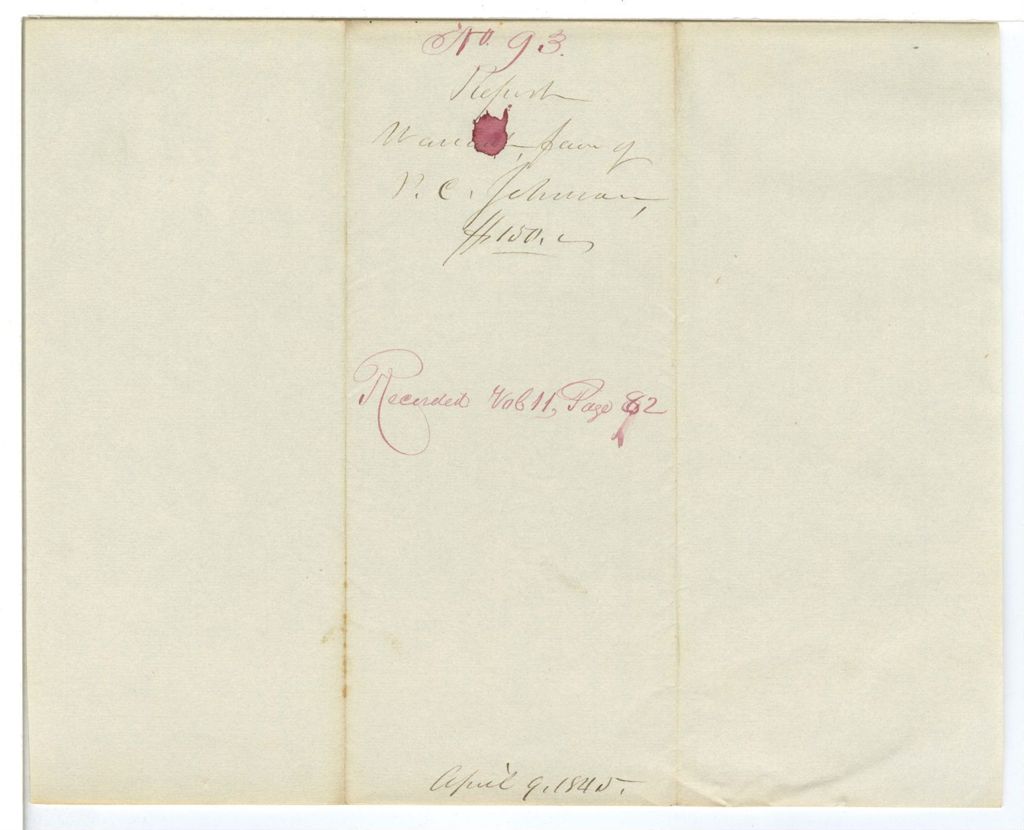 No. 93.
Report
Warrant, favor of
P. C. Johnson,
$150.
Recorded Vol 11, Page 82
April 9. 1845.